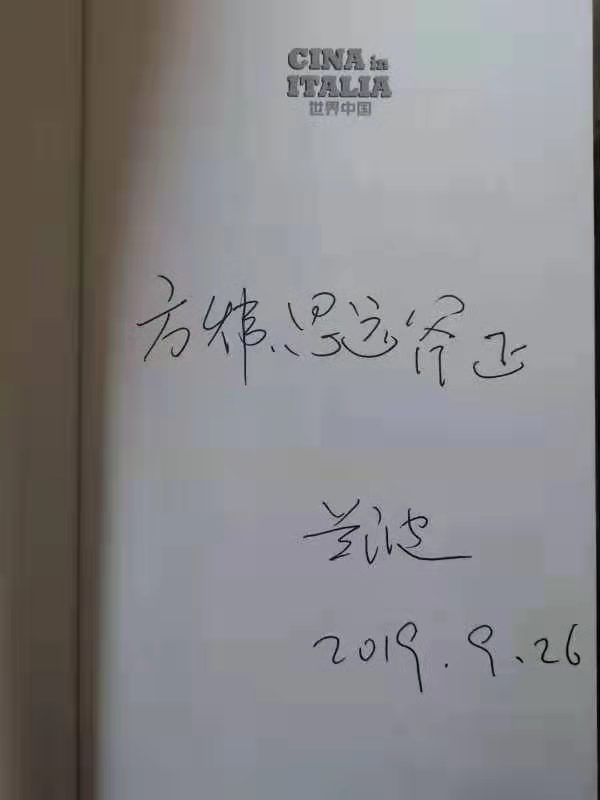 CINA in
ITALIA
世界中国
方炜、思远斧正
兰波
2019.9.26